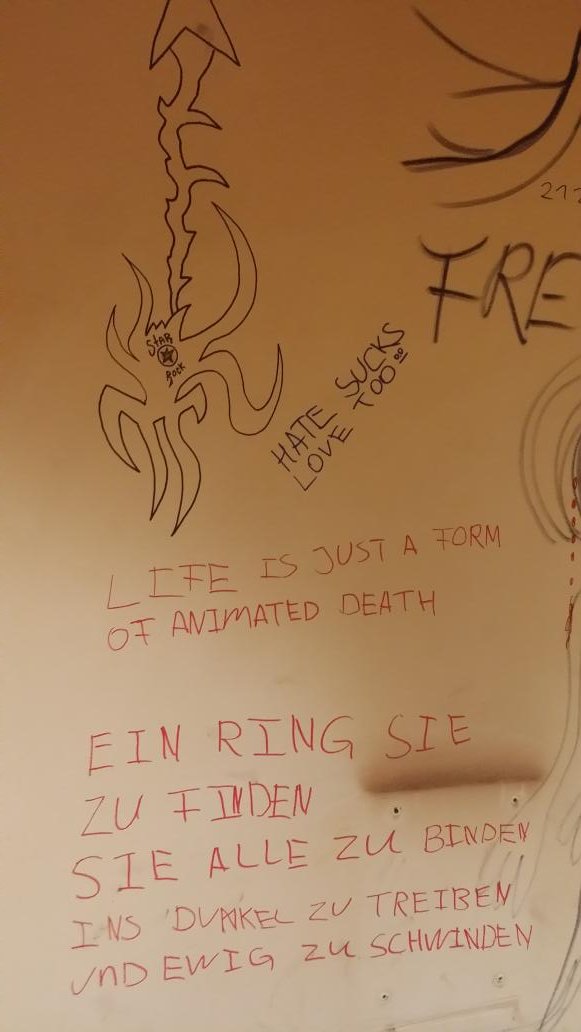 212
FRE
STAR
ROCK
HATE SUCKS
LOVE TOO!!
LIFE IS JUST A FORM
OF ANIMATED DEATH
EIN RING SIE
ZU FINDEN
SIE ALLE ZU BINDEN
INS DUNKEL ZU TREIBEN
UND EWIG ZU SCHWINDEN